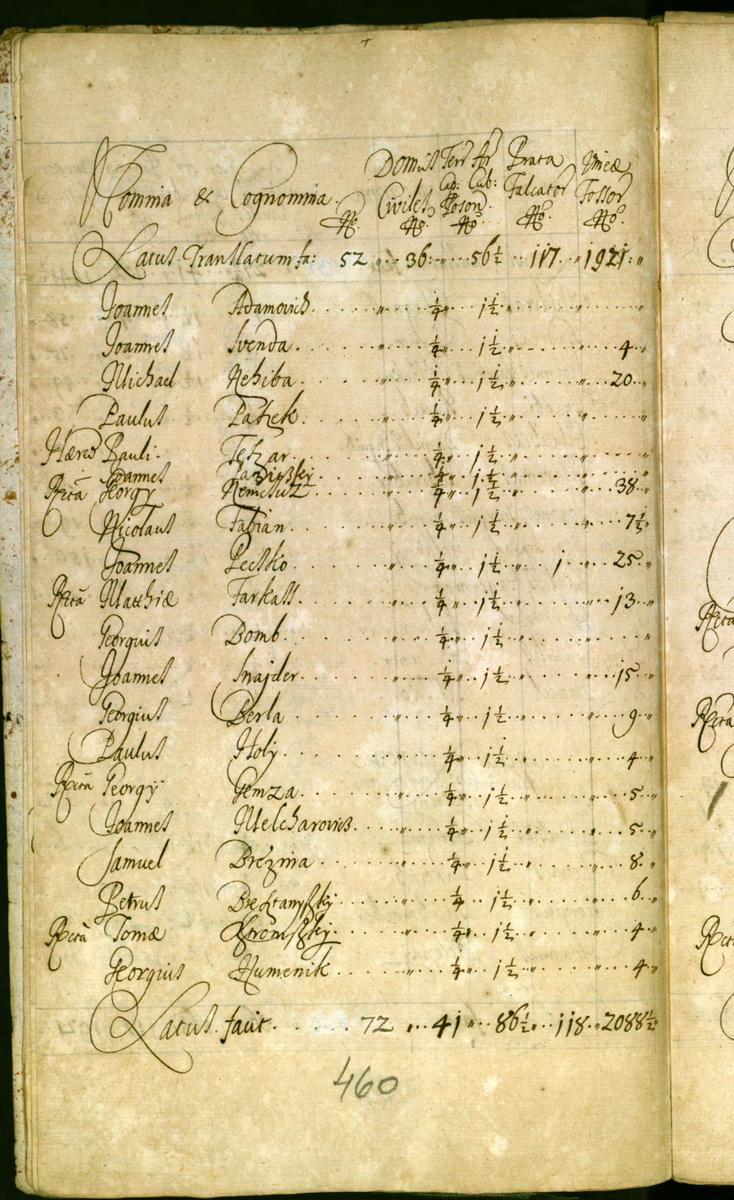 Nomina & Cognomina. No. Domus Civiles No. Terr Ar Cap: Cub: Poson. No. Prata Falcator No. Vineæ Fossor No.
Latus Translatum fa: 52 " 36: 56½ 117 1921
Joannes Adamovich ¼ 1½ "
Joannes Svenda ¼ 1½ " 4
Michael Rehiba ¼ 1½ " 20
Paulus Patzek ¼ 1½ "
Hæred Pauli Tetzar ¼ 1½ "
Joannes ¼ 1½ "
Rcta Georgy Nemchitz ¼ 1½ 38
Nicolaus Fabian ¼ 1½ " 7½
Joannes Petsko ¼ 1½ 1 25
Rcta Matthiæ Farkass ¼ 1½ " 13
Georgius Bomb ¼ 1½ "
Joannes Snajder ¼ 1½ " 15
Georgius Berla ¼ 1½ " 9
Paulus Holy ¼ 1½ " 4
Rcta Georgy Gemza ¼ 1½ " 5
Joannes Melcharovich ¼ 1½ " 5
Samuel Brezina ¼ 1½ " 8
Petrus ¼ 1½ " 6
Rcta Tomæ ¼ 1½ " 4
Georgius Humenik ¼ 1½ " 4
Latus facit 72 " 41 86½ 118 2088½
460